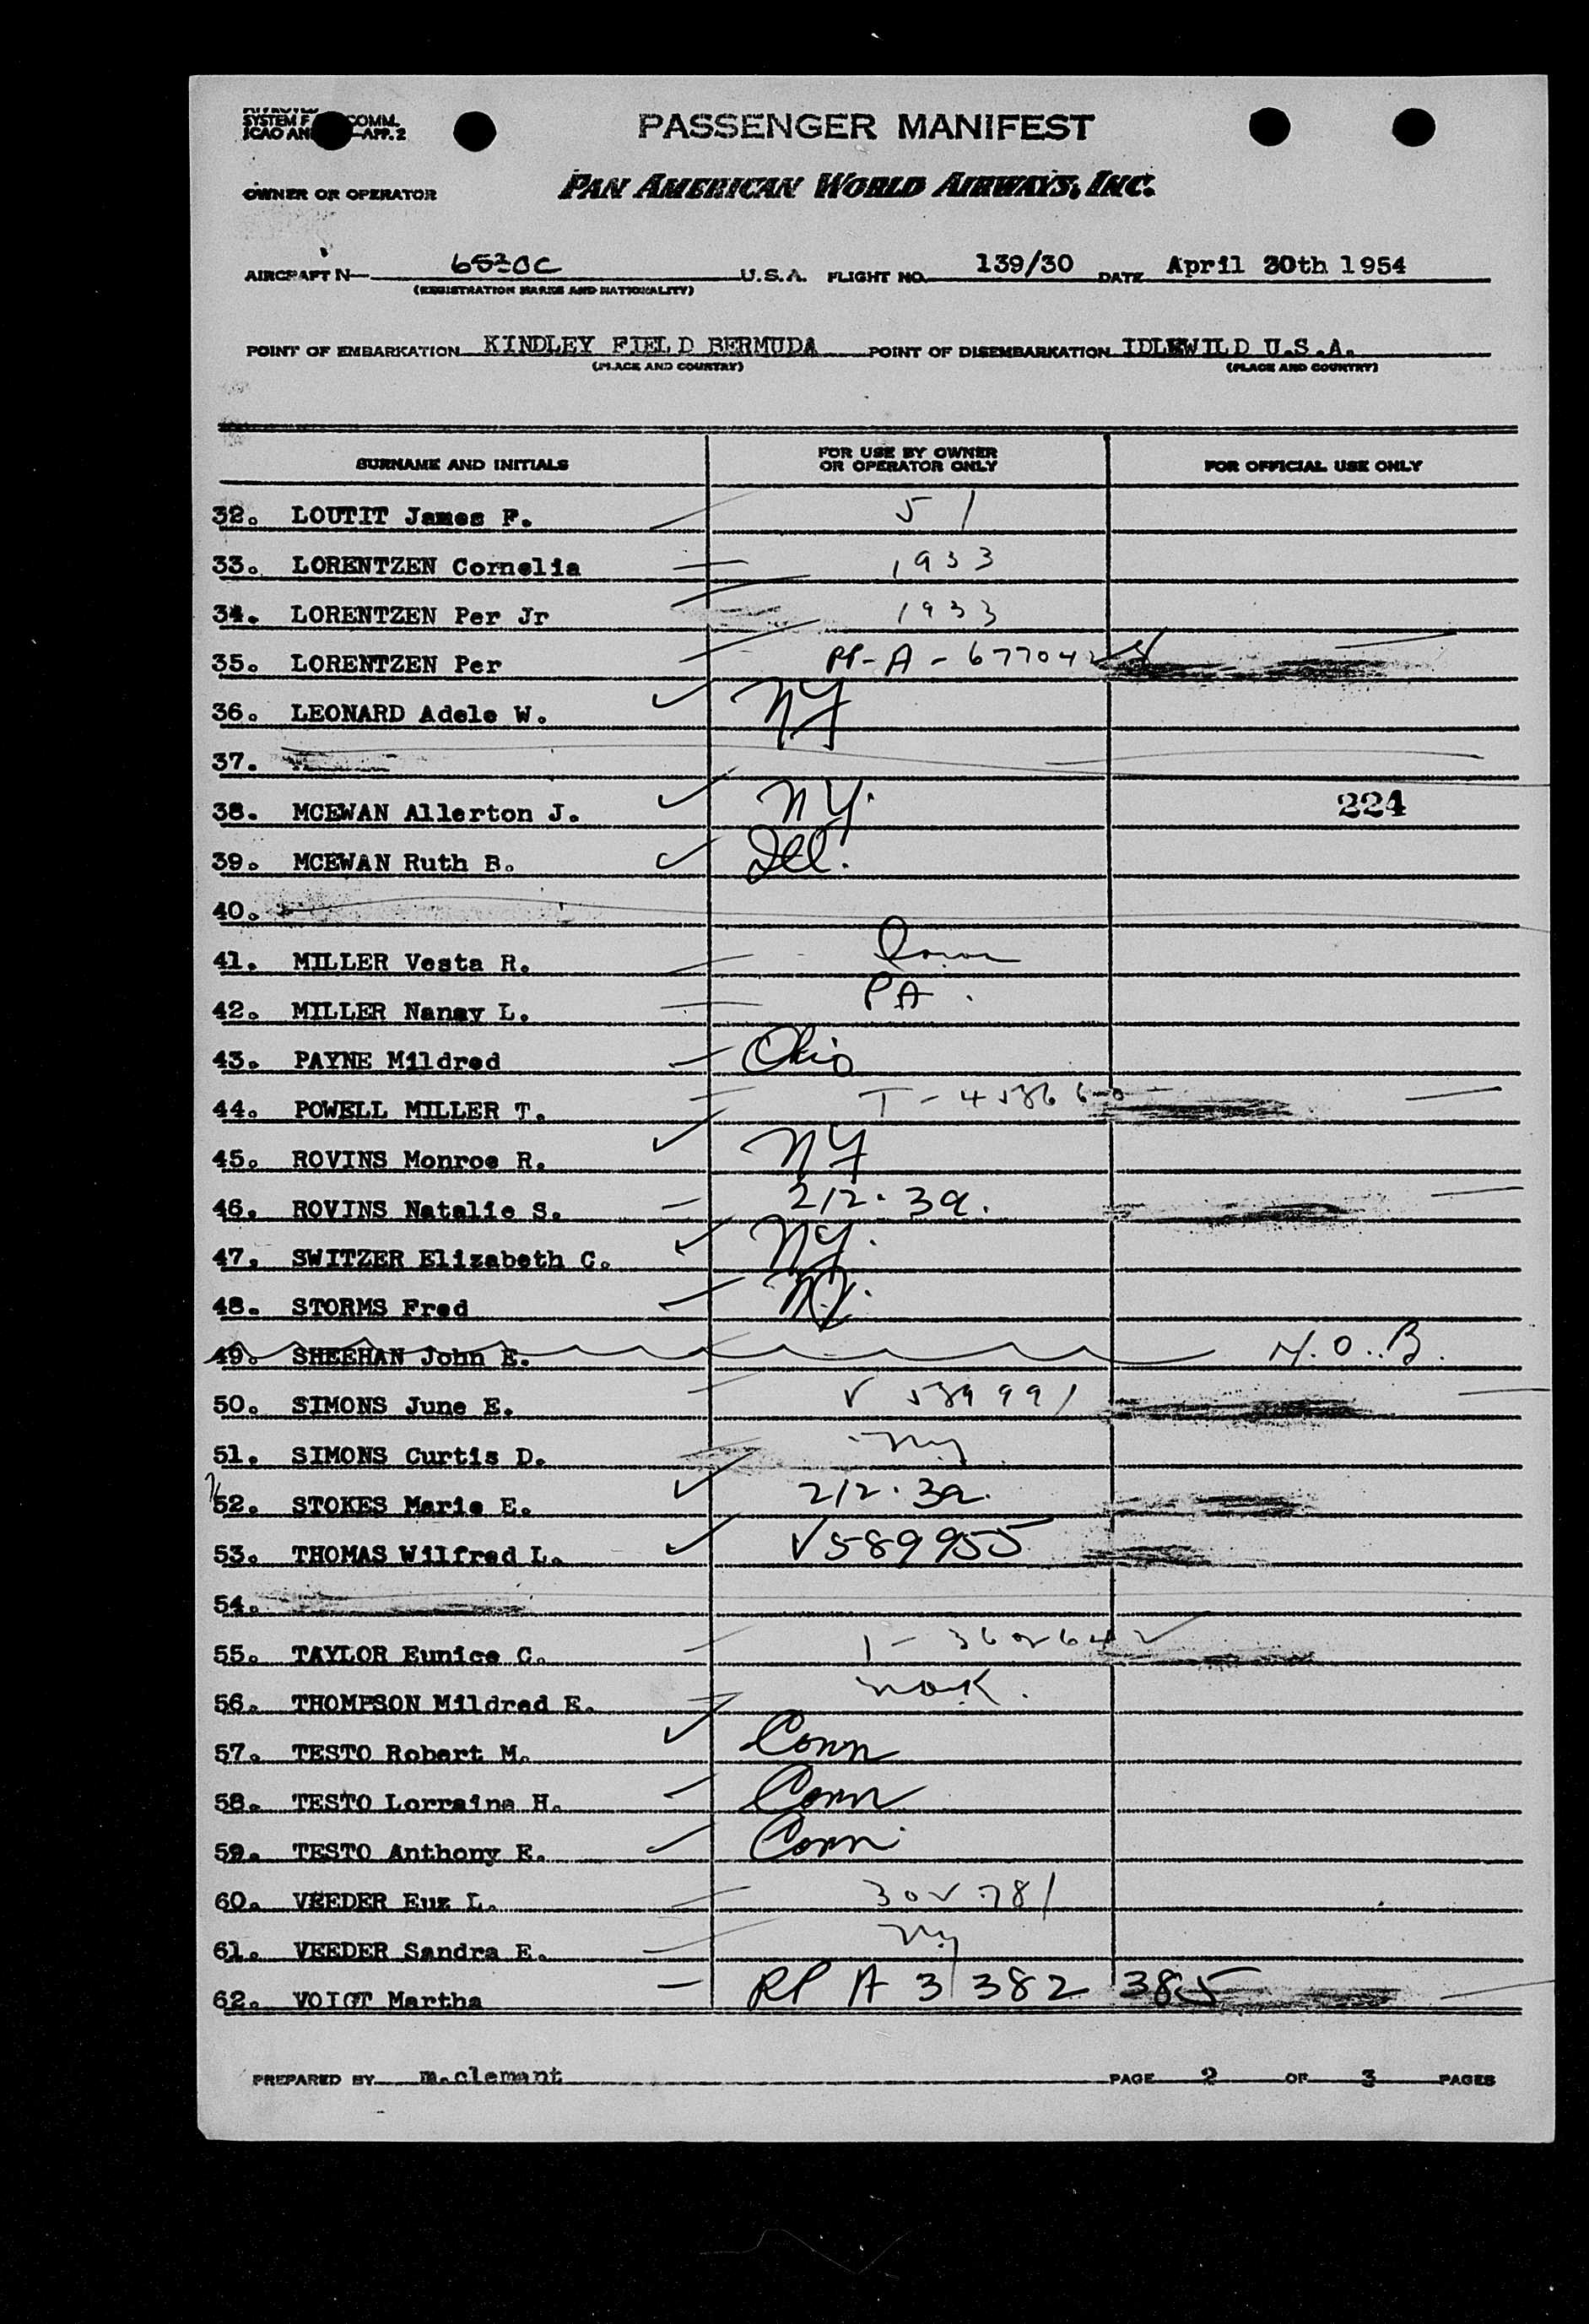 SYSTEM F COMM.
ICAO AN -APP. 2
PASSENGER MANIFEST
OWNER OR OPERATOR PAN AMERICAN WORLD AIRWAYS, INC.
AIRCRAFT N— U.S.A. FLIGHT NO. 139/30 DATE April 30th 1954
(REGISTRATION MARKS AND NATIONALITY)
POINT OF EMBARKATION KINDLEY FIELD BERMUDA POINT OF DISEMBARKATION IDLEWILD U.S.A.
(PLACE AND COUNTRY) (PLACE AND COUNTRY)
SURNAME AND INITIALS FOR USE BY OWNER OR OPERATOR ONLY FOR OFFICIAL USE ONLY
32. LOUTIT James F. 51
33. LORENTZEN Cornelia 1933
34. LORENTZEN Per Jr 1933
35. LORENTZEN Per PP-A-
36. LEONARD Adele W. NY
37.
38. MCEWAN Allerton J. NY. 224
39. MCEWAN Ruth B. Ill.
40.
41. MILLER Vesta R.
42. MILLER Nanay L. PA.
43. PAYNE Mildred Ohio
44. POWELL MILLER T.
45. ROVINS Monroe R. NY
46. ROVINS Natalie S. 212.3a.
47. SWITZER Elizabeth C. NY.
48. STORMS Fred NJ.
49. SHEEHAN John E. N.O.B.
50. SIMONS June E. V 589991
51. SIMONS Curtis D. NY
52. STOKES Marie E. 212.3a.
53. THOMAS Wilfred L. V589955
54.
55. TAYLOR Eunice C.
56. THOMPSON Mildred E.
57. TESTO Robert M. Conn
58. TESTO Lorraine H. Conn
59. TESTO Anthony E. Conn
60. VEEDER Eux L.
61. VEEDER Sandra E. NY
62. VOIGT Martha PP A 3 382 385
PREPARED BY m.clemant PAGE 2 OF 3 PAGES